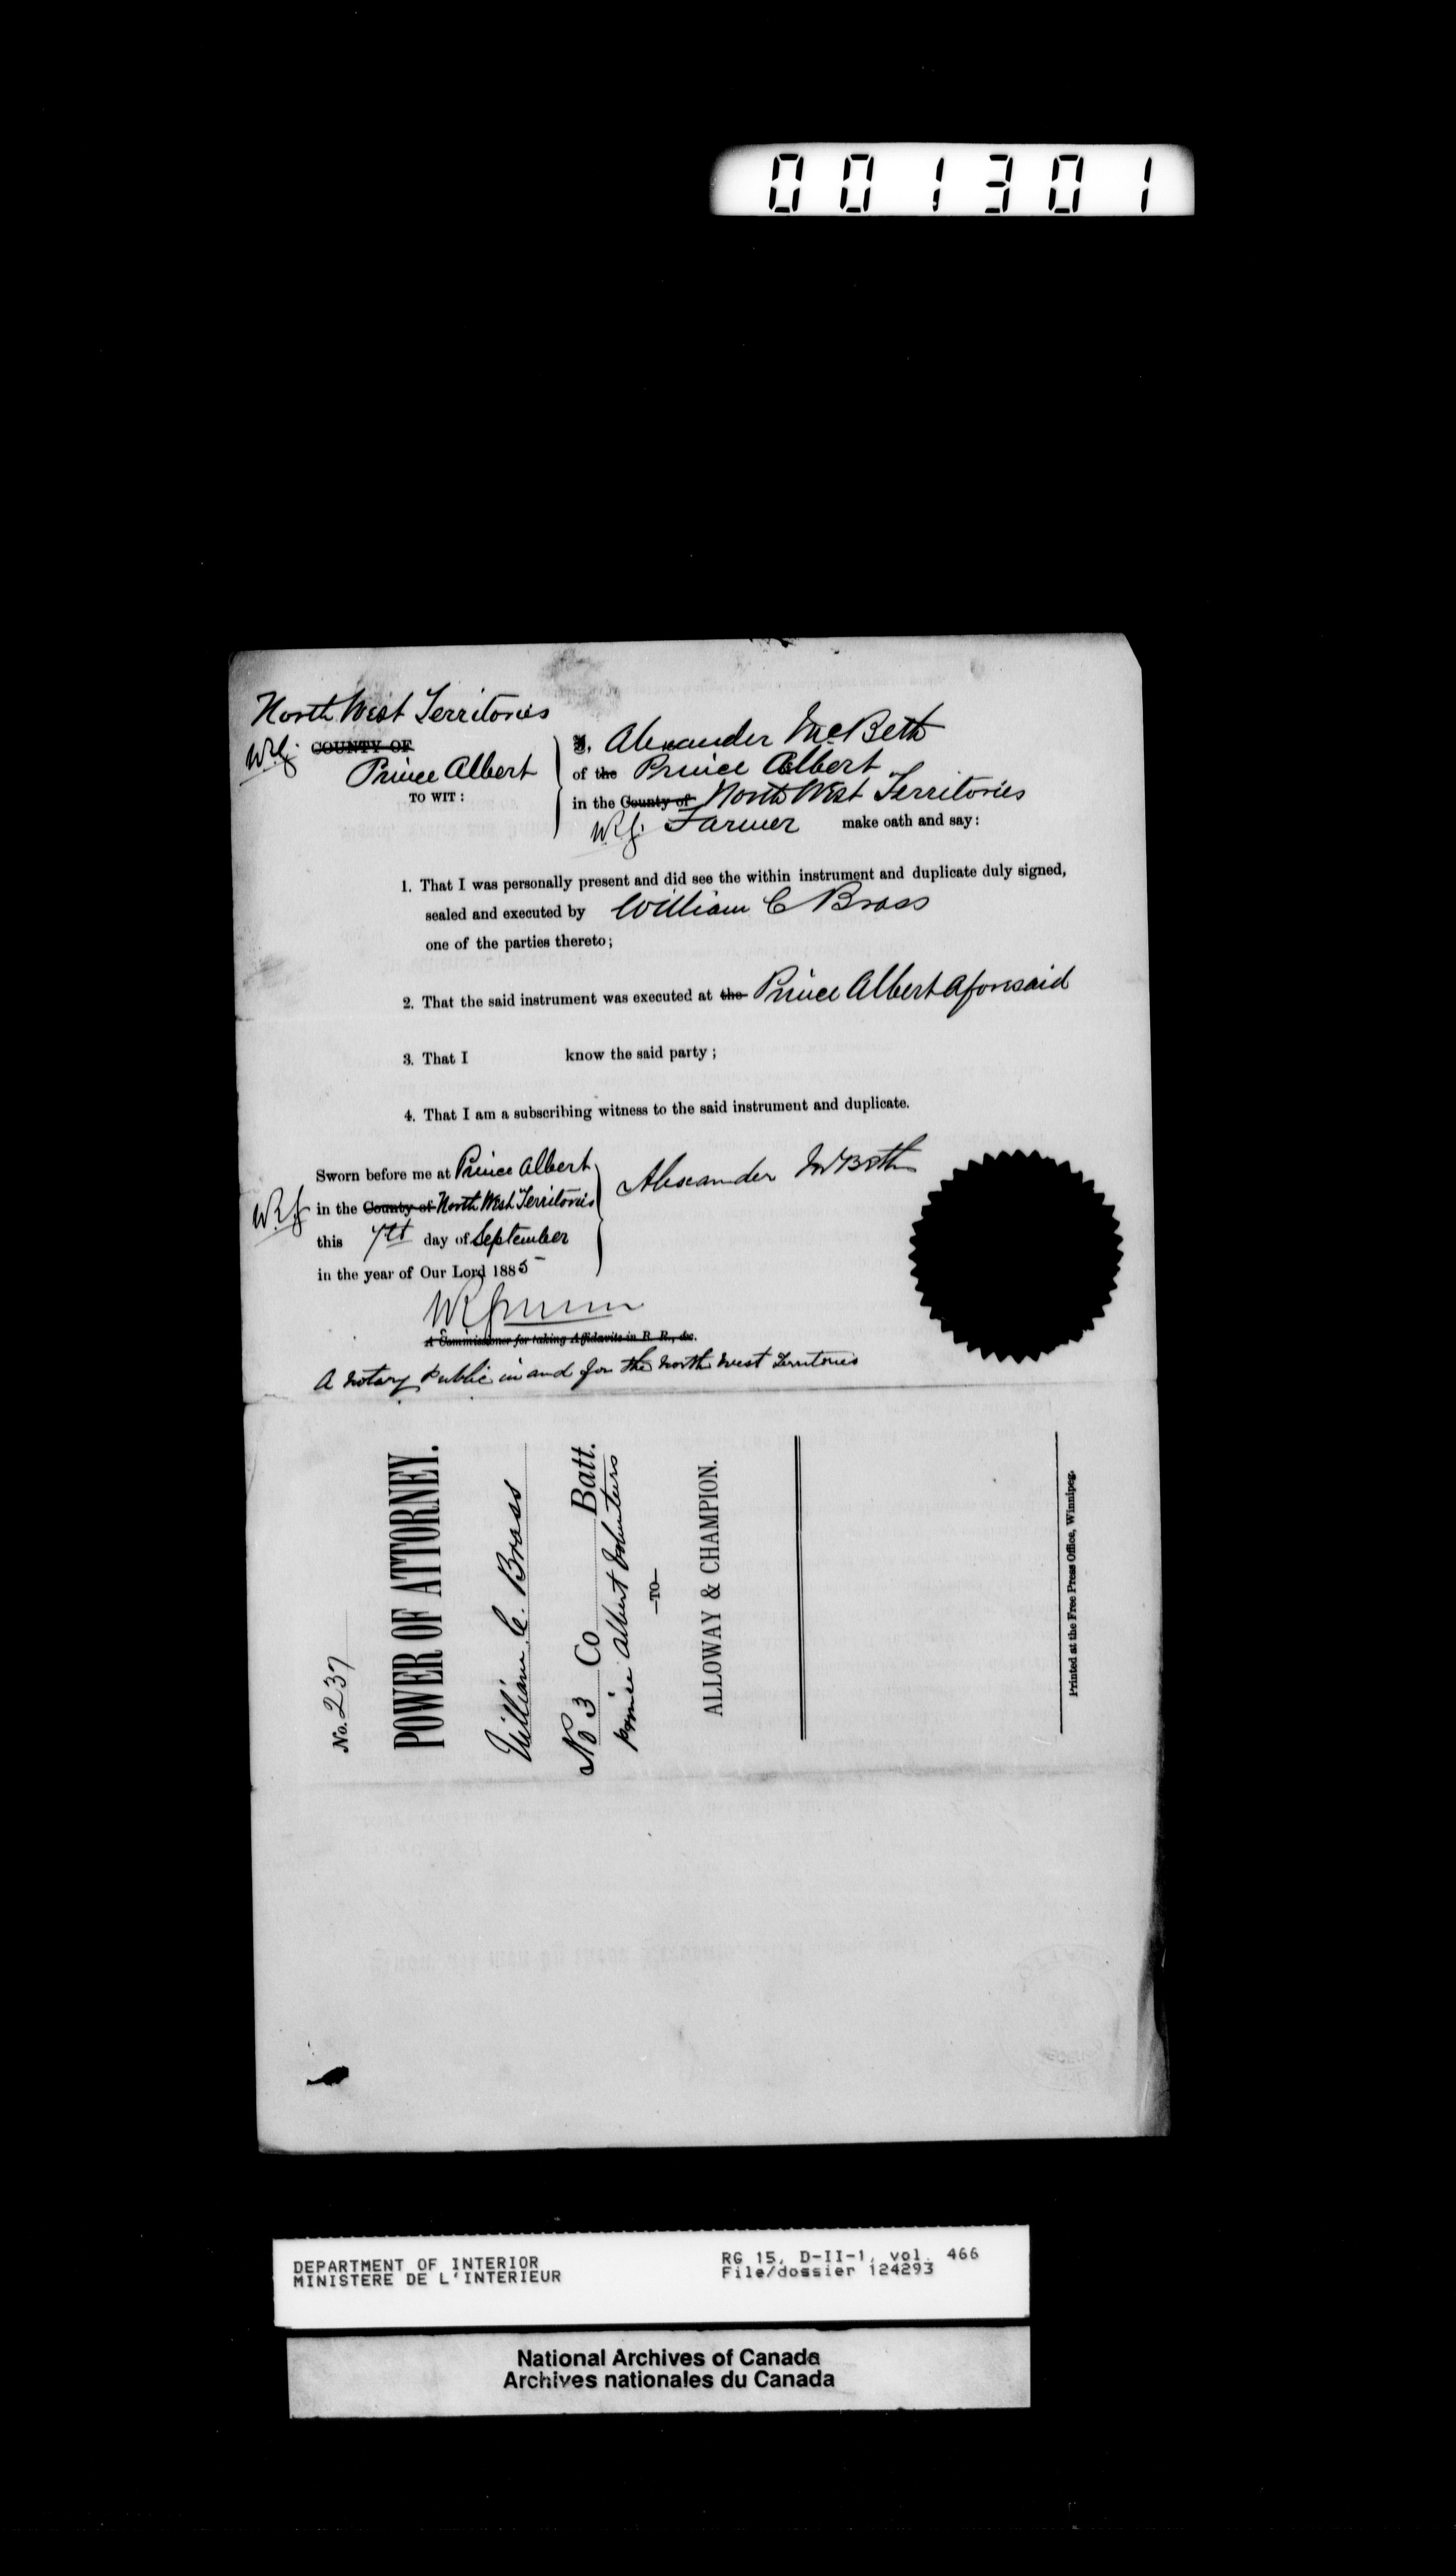 001301
North West Territories
COUNTY OF
Prince Albert
TO WIT:
I, Alexander McBeth
of the Prince Albert
in the County of North West Territories
Farmer make oath and say:
1. That I was personally present and did see the within instrument and duplicate duly signed,
sealed and executed by William C Brass
one of the parties thereto;
2. That the said instrument was executed at the Prince Albert aforesaid
3. That I know the said party;
4. That I am a subscribing witness to the said instrument and duplicate.
Sworn before me at Prince Albert
in the County of North West Territories
this 7th day of September
in the year of Our Lord 1885
Alexander McBeth
A Commissioner for taking Affidavits in B. R., &c.
A Notary Public in and for the North West Territories
No. 237
POWER OF ATTORNEY.
William C. Brass
No 3 Co Batt.
Prince Albert Volunteers
—TO—
ALLOWAY & CHAMPION.
Printed at the Free Press Office, Winnipeg.
DEPARTMENT OF INTERIOR
MINISTERE DE L'INTERIEUR
RG 15, D-II-1, vol. 466
File/dossier 124293
National Archives of Canada
Archives nationales du Canada